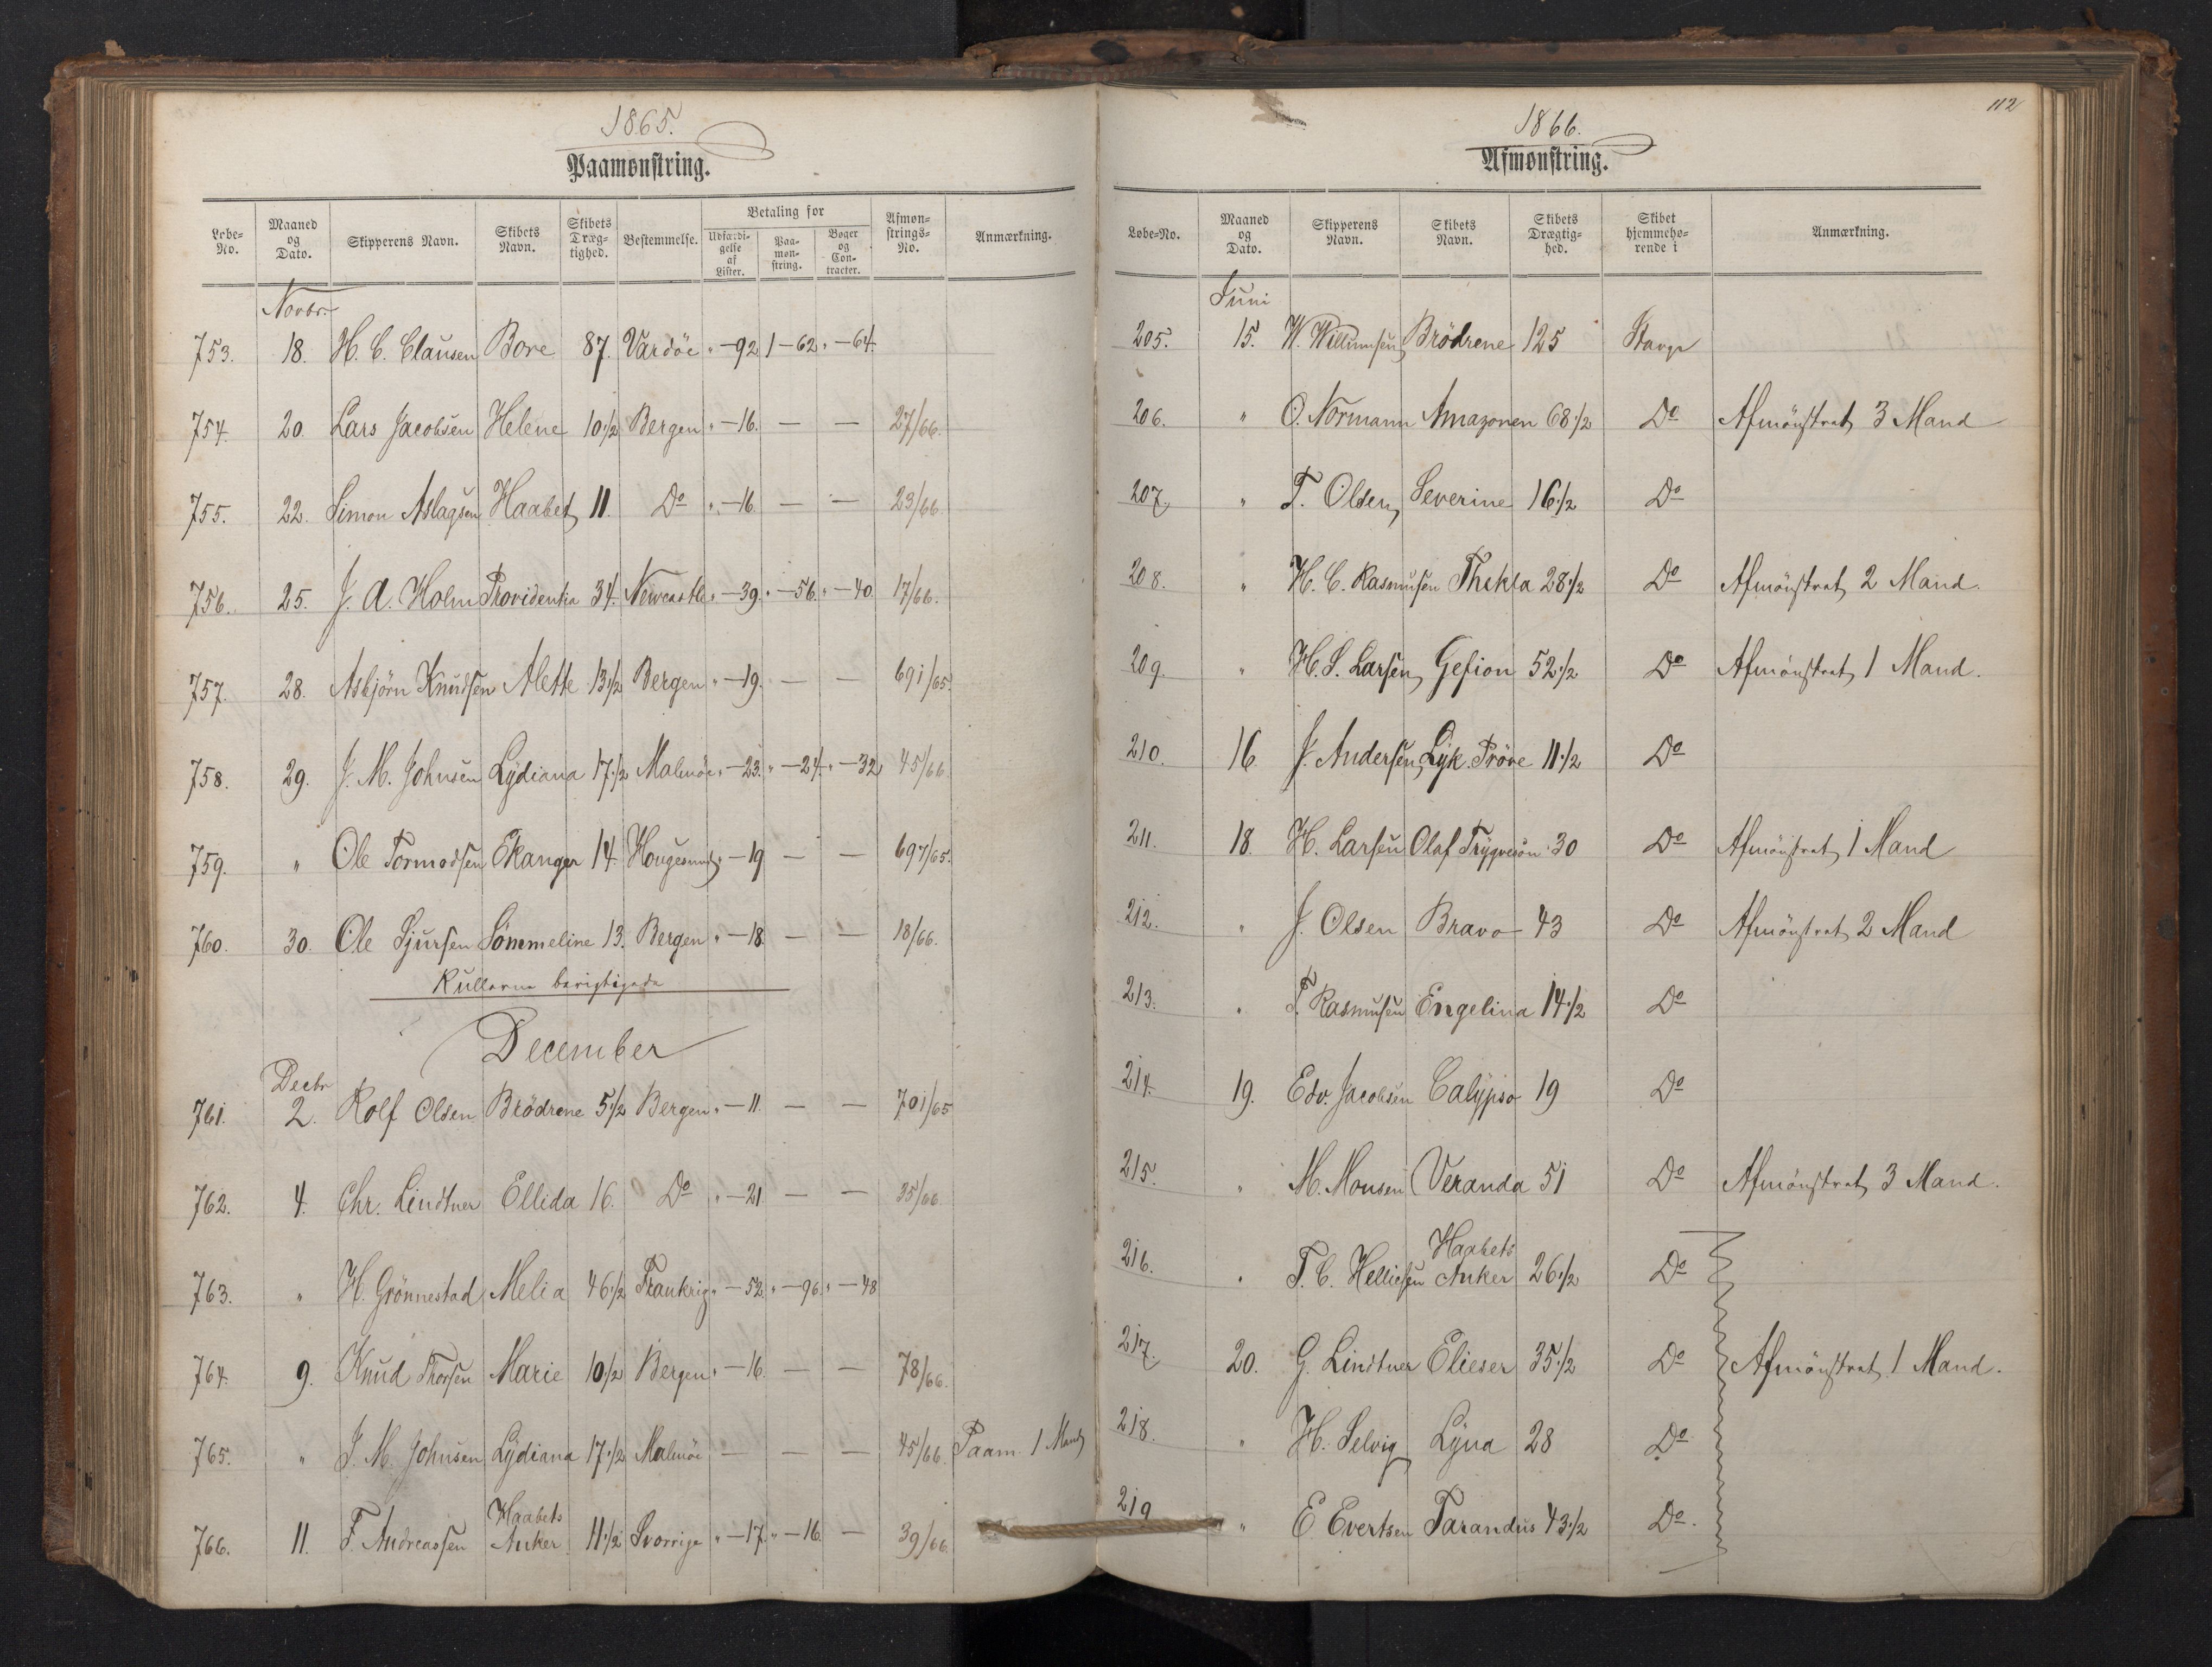 1865.
Paamønstring.
Løbe-No. | Maaned og Dato. | Skipperens Navn. | Skibets Navn. | Skibets Dræg-tighed. | Bestemmelse. | Betaling for: Udfærdi-gelse af Lister. | Paa-møn-string. | Bøger og Con-tracter. | Afmøn-strings-No. | Anmærkning.
Novbr.
753. 18. H. C. Clausen Bore 87. Vardöe " - 92 1 - 62 " - 64.
754. 20. Lars Jacobsen Helene 10 1/2 Bergen " - 16. — — 27/66.
755. 22. Simon Aslagsen Haabet 11. Do " - 16 — — 23/66.
756. 25. J. A. Holm Providentia 34. Newcastle " - 39. " - 56. " - 40. 17/66.
757. 28. Asbjörn Knudsen Alette 13 1/2 Bergen " - 19. — — 691/65.
758. 29. J. M. Johnsen Lydiana 17 1/2 Malmöe " - 23. " - 24. " - 32 45/66.
759. " Ole Tormodsen Ekanger 14. Hougesund " - 19 — — 697/65.
760. 30. Ole Sjursen Sömmeline 13. Bergen " - 18. — — 18/66.
Rullerne berigtigede
December
Decbr
761. 2. Rolf Olsen Brödrene 5 1/2 Bergen " - 11. — — 701/65
762. 4. Chr. Lindtner Ellida 16. Do " - 21 — — 35/66.
763. " H. Grönnestad Melia 46 1/2 Frankrig " - 52. " - 96. " - 48
764. 9. Knud Thorsen Marie 10 1/2 Bergen " - 16. — — 78/66.
765. " J. M. Johnsen Lydiana 17 1/2 Malmöe — — — 45/66. Paam. 1 Mand
766. 11. F. Andreassen Haabets Anker 11 1/2 Sverrige " - 17. " - 16. — 39/66.
112
1866.
Afmønstring.
Løbe-No. | Maaned og Dato. | Skipperens Navn. | Skibets Navn. | Skibets Drægtig-hed. | Skibet hjemmehø-rende i | Anmærkning.
Juni
205. 15. W. Willumsen Brödrene 125 Stavgr
206. " O. Normann Amazonen 68 1/2 Do Afmönstret 3 Mand
207. " T. Olsen Severine 16 1/2 Do
208. " H. C. Rasmusen Thekla 28 1/2 Do Afmönstret 2 Mand.
209. " H. S. Larsen Gefion 52 1/2 Do Afmönstret 1 Mand.
210. 16 J. Andersen Lyk. Pröve 11 1/2 Do
211. 18. H. Larsen Olaf Trygvesön 30 Do Afmönstret 1 Mand
212. " J. Olsen Bravo 43 Do Afmönstret 2 Mand
213. " T. Rasmusen Engelina 14 1/2 Do
214. 19. Edv. Jacobsen Calypso 19 Do
215. " M. Monsen Veranda 51 Do Afmönstret 3 Mand.
216. " T. C. Helliesen Haabets Anker 26 1/2 Do
217. 20. G. Lindtner Elieser 35 1/2 Do Afmönstret 1 Mand.
218. " H. Selvig Lyna 28 Do
219 " E Evertsen Tarandus 43 1/2 Do.